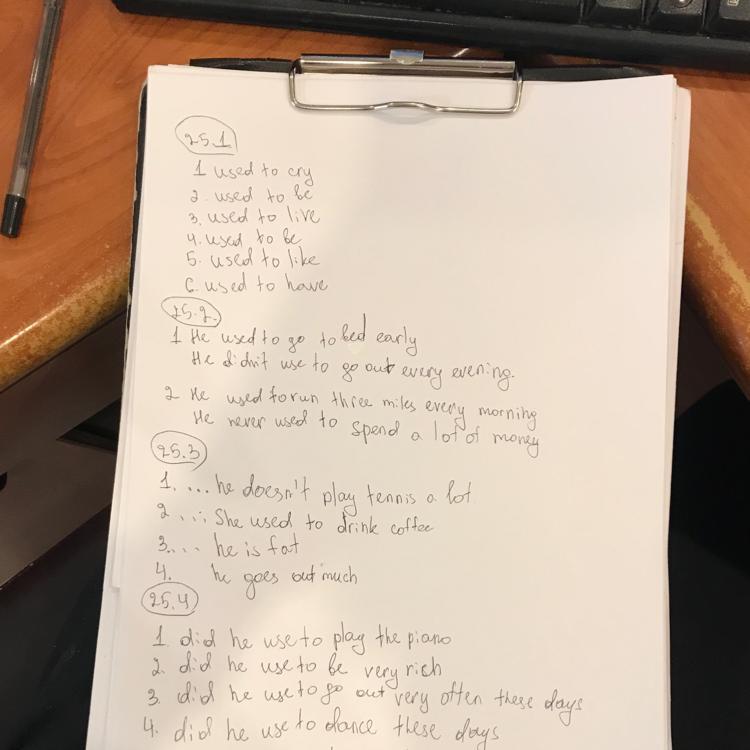 25.1
1 used to cry
2. used to be
3. used to live
4. used to be
5. used to like
6. used to have
25.2.
1 He used to go to bed early
He didn't use to go out every evening.
2 He used to run three miles every morning
He never used to spend a lot of money
25.3
1. ... he doesn't play tennis a lot
2 ... She used to drink coffee
3.... he is fat
4. he goes out much
25.4
1. did he use to play the piano
2. did he use to be very rich
3. did he use to go out very often these days
4. did he use to dance these days